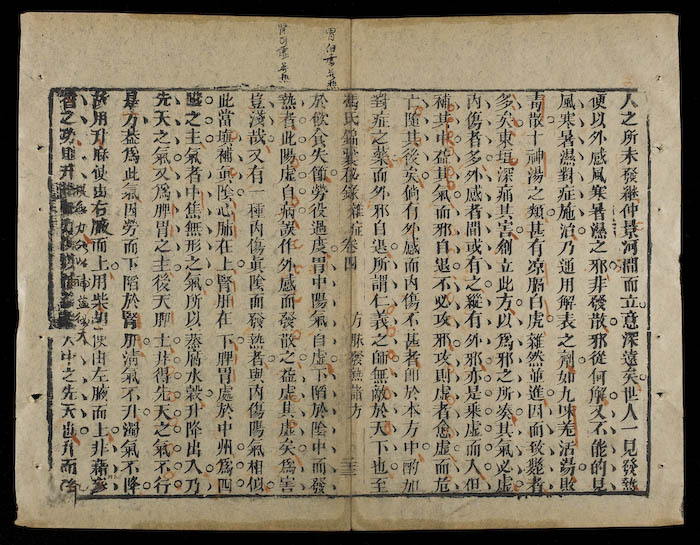 胃伯
腎
人之所未發繼仲景河間而立意深遠矣世人一見發熱
便以外感風寒暑濕之邪非發散邪從何解又不能的見
風寒暑濕對症施治乃通用解表之劑如九味羌活湯敗
毒散十神湯之類甚有凉膈白虎雜然並進因而致斃者
多矣東垣深痛其害創立此方以為邪之所奏其氣必虛
內傷者多外感者間或有之縱有外邪亦是乘虛而入但
補其中益其氣而邪自退不必攻邪攻則虛者愈虛而危
亡隨其後矣倘有外感而內傷不甚者即於本方中酌加
對症之藥而外邪自退所謂仁義之師無敵於天下也至
馮氏錦囊秘錄 雜症 卷四 方脉發熱諸方
於飲食失節勞役過度胃中陽氣自虛下陷於陰中而發
熱者此陽虛自病誤作外感而發散之益虛其虛矣為害
豈淺哉又有一種內傷眞陰而發熱者與內傷陽氣相似
此當填補眞陰心肺在上腎肝在下脾胃處於中州為四
臟之主氣者中焦無形之氣所以蒸腐水穀升降出入乃
先天之氣又為脾胃之主後天脾土非得先天之氣不行
是方蓋為此氣因勞而下陷於腎肝清氣不升濁氣不降
故用升麻使由右腋而上用柴胡使由左腋而上非藉參
之功則升 中之先天也升而降